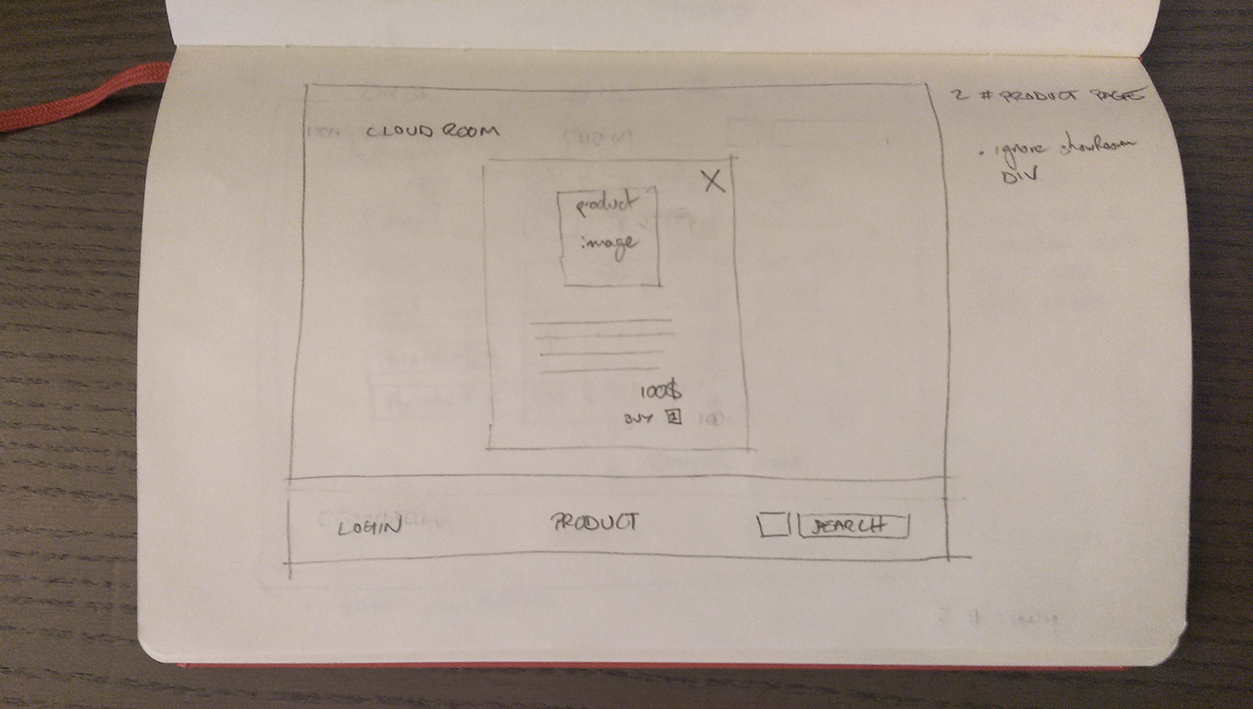 2 # PRODUCT PAGE
• ignore showRoom
DIV
CLOUD ROOM
X
product
image
100$
BUY
LOGIN
PRODUCT
SEARCH